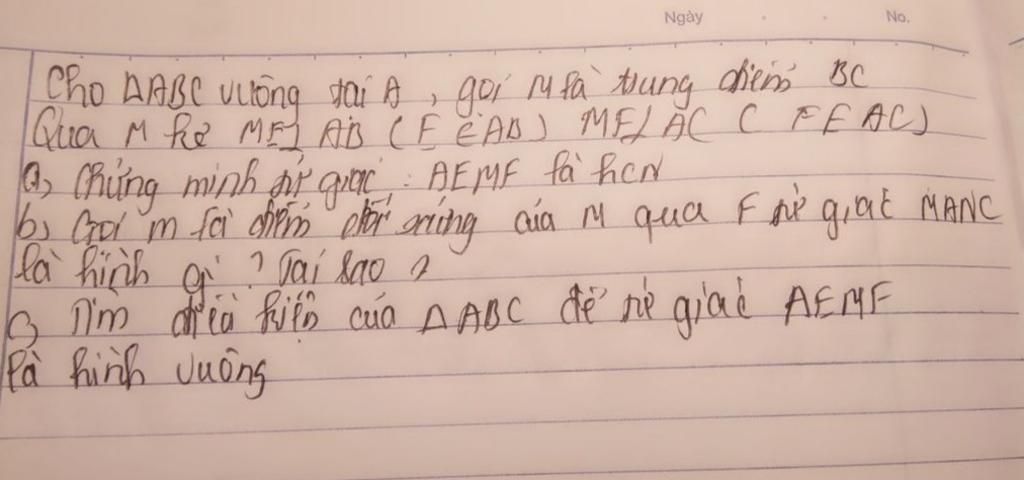 Ngày No.
Cho ΔABC vuông tại A, gọi M là trung điểm BC
Qua M kẻ ME⊥AB (E∈AB) MF⊥AC (F∈AC)
a, Chứng minh tứ giác: AEMF là hcn
b, Gọi m là điểm đối xứng của M qua F tứ giác MANC
là hình gì? Tại sao?
c, Tìm điều kiện của ΔABC để tứ giác AEMF
là hình vuông